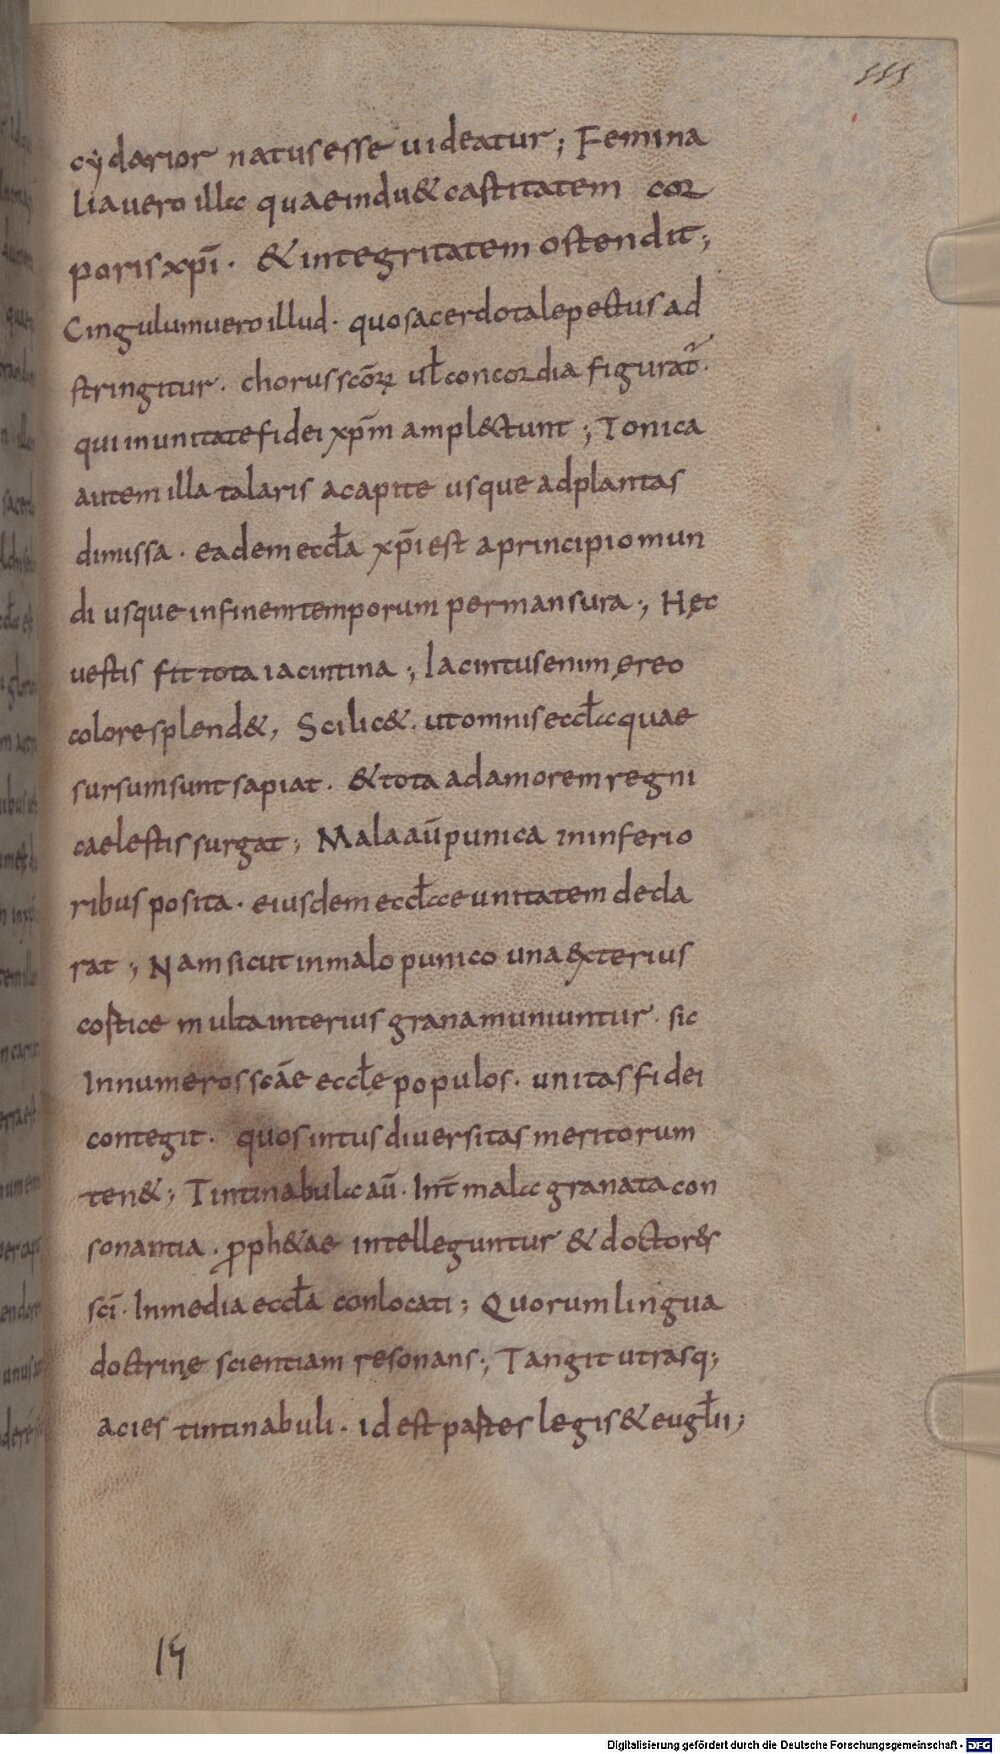 111
cydarior natus esse uideatur; Femina
lia uero illa quae indu& castitatem cor
poris xp̄i · & integritatem ostendit;
Cingulum uero illud · quo sacerdotale pectus ad
stringitur · chorus sc̄oꝝ ul̄ concordia figurat᷑ ·
qui in unitate fidei xp̄m ampl&ctunt; Tonica
autem illa talaris a capite usque ad plantas
dimissa · eadem eccl̄a xp̄i est a principio mun
di usque in finem temporum permansura; Hęc
uestis fit tota iacintina; Iacintus enim ęreo
colore splend&, Scilic& · ut omnis eccl̄a quae
sursum sunt sapiat · & tota ad amorem regni
caelestis surgat; Mala aū punica in inferio
ribus posita · eiusdem eccl̄ae unitatem decla
rat; Nam sicut in malo punico una exterius
cortice multa interius grana muniuntur · sic
Innumeros sc̄ae eccl̄ę populos · unitas fidei
contegit · quos intus diuersitas meritorum
ten&; Tintinabula aū · Int̄ mala granata con
sonantia · ꝓph&ae intelleguntur & doctor&s
sc̄i · In media eccl̄a conlocati; Quorum lingua
doctrinę scientiam resonans; Tangit utrasq;
acies tintinabuli · id est partes legis & eugl̄ii;
15
Digitalisierung gefördert durch die Deutsche Forschungsgemeinschaft - DFG